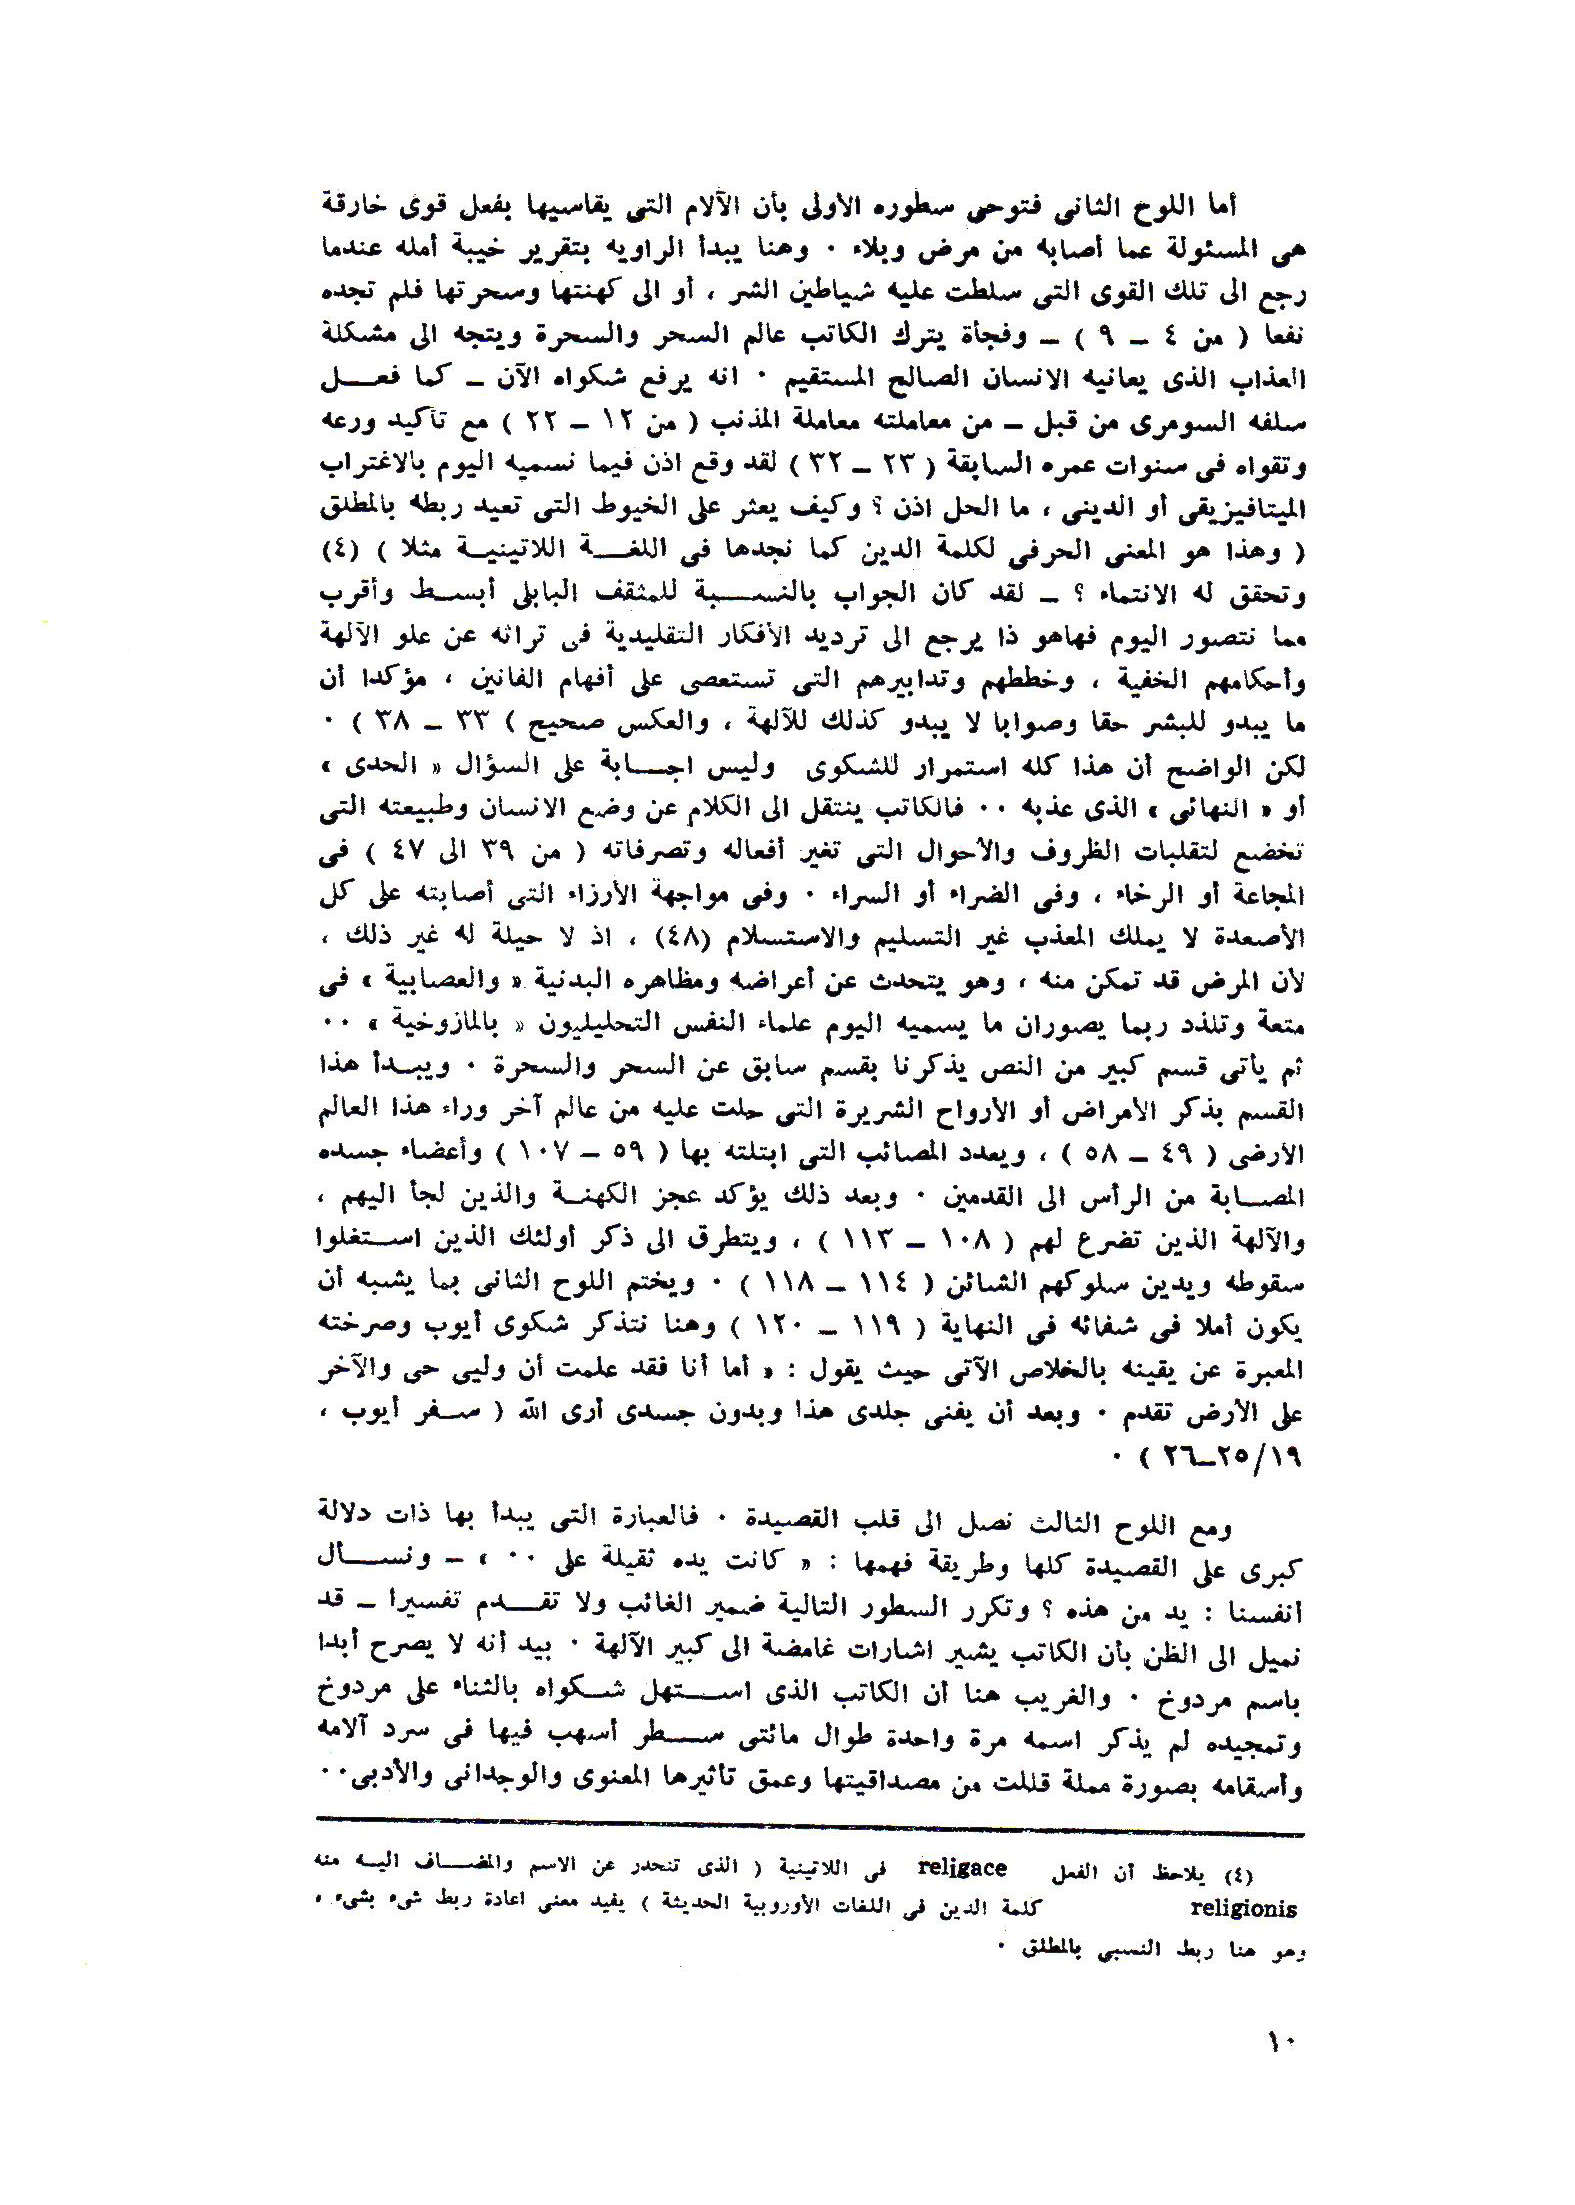 أما اللوح الثانى فتوحى سطوره الأولى بأن الآلام التى يقاسيها بفعل قوى خارقة
هى المسئولة عما أصابه من مرض وبلاء ٠ وهنا يبدأ الراويه بتقرير خيبة أمله عندما
رجع الى تلك القوى التى سلطت عليه شياطين الشر ، أو الى كهنتها وسحرتها فلم تجده
نفعا ( من ٤ ـ ٩ ) ـ وفجأة يترك الكاتب عالم السحر والسحرة ويتجه الى مشكلة
العذاب الذى يعانيه الانسان الصالح المستقيم ٠ انه يرفع شكواه الآن ـ كما فعـــل
سلفه السومرى من قبل ـ من معاملته معاملة المذنب ( من ١٢ ـ ٢٢ ) مع تأكيد ورعه
وتقواه فى سنوات عمره السابقة ( ٢٣ ـ ٣٢ ) لقد وقع اذن فيما نسميه اليوم بالاغتراب
الميتافيزيقى أو الدينى ، ما الحل اذن ؟ وكيف يعثر على الخيوط التى تعيد ربطه بالمطلق
( وهذا هو المعنى الحرفى لكلمة الدين كما نجدها فى اللغـــة اللاتينيـة مثلا ) (٤)
وتحقق له الانتماء ؟ ـ لقد كان الجواب بالنســـبة للمثقف البابلى أبسـط وأقرب
مما نتصور اليوم فهاهو ذا يرجع الى ترديد الأفكار التقليدية فى تراثه عن علو الآلهة
وأحكامهم الخفية ، وخططهم وتدابيرهم التى تستعصى على أفهام الفانين ، مؤكدا أن
ما يبدو للبشر حقا وصوابا لا يبدو كذلك للآلهة ، والعكس صحيح ) ٣٣ ـ ٣٨ ) ٠
لكن الواضح أن هذا كله استمرار للشكوى وليس اجـــابة على السؤال « الحدى »
أو « النهائى » الذى عذبه ٠٠ فالكاتب ينتقل الى الكلام عن وضع الانسان وطبيعته التى
تخضع لتقلبات الظروف والأحوال التى تغير أفعاله وتصرفاته ( من ٣٩ الى ٤٧ ) فى
المجاعة أو الرخاء ، وفى الضراء أو السراء ٠ وفى مواجهة الأرزاء التى أصابته على كل
الأصعدة لا يملك المعذب غير التسليم والاستسلام (٤٨) ، اذ لا حيلة له غير ذلك ،
لأن المرض قد تمكن منه ، وهو يتحدث عن أعراضه ومظاهره البدنية « والعصابية » فى
متعة وتلذذ ربما يصوران ما يسميه اليوم علماء النفس التحليليون « بالمازوخية » ٠٠
ثم يأتى قسم كبير من النص يذكرنا بقسم سابق عن السحر والسحرة ٠ ويبـدأ هذا
القسم بذكر الأمراض أو الأرواح الشريرة التى حلت عليه من عالم آخر وراء هذا العالم
الأرضى ( ٤٩ ـ ٥٨ ) ، ويعدد المصائب التى ابتلته بها ( ٥٩ ـ ١٠٧ ) وأعضاء جسده
المصـابة من الرأس الى القدمين ٠ وبعد ذلك يؤكد عجز الكهنـة والذين لجأ اليهم ،
والآلهة الذين تضرع لهم ( ١٠٨ ـ ١١٣ ) ، ويتطرق الى ذكر أولئك الذين اســتغلوا
سقوطه ويدين سلوكهم الشائن ( ١١٤ ـ ١١٨ ) ٠ ويختم اللوح الثانى بما يشبه أن
يكون أملا فى شفائه فى النهاية ( ١١٩ ـ ١٢٠ ) وهنا نتذكر شكوى أيوب وصرخته
المعبرة عن يقينه بالخلاص الآتى حيث يقول : « أما أنا فقد علمت أن وليى حى والآخر
على الأرض تقدم ٠ وبعد أن يفنى جلدى هذا وبدون جسدى أرى الله ( سـفر أيوب ،
١٩/٢٥ـ٢٦ ) ٠
ومع اللوح الثالث نصل الى قلب القصيدة ٠ فالعبارة التى يبدأ بها ذات دلالة
كبرى على القصيدة كلها وطريقة فهمها : « كانت يده ثقيلة على ٠٠ » ـ ونســـأل
أنفسنا : يد من هذه ؟ وتكرر السطور التالية ضمير الغائب ولا تقـــدم تفسيرا ـ قد
نميل الى الظن بأن الكاتب يشير اشارات غامضة الى كبير الآلهة ٠ بيد أنه لا يصرح أبدا
باسم مردوخ ٠ والغريب هنا أن الكاتب الذى اســـتهل شـــكواه بالثناء على مردوخ
وتمجيده لم يذكر اسمه مرة واحدة طوال مائتى ســـطر أسهب فيها فى سرد آلامه
وأسقامه بصورة مملة قللت من مصداقيتها وعمق تأثيرها المعنوى والوجدانى والأدبى٠٠
(٤) يلاحظ أن الفعل religace فى اللاتينية ( الذى تنحدر عن الاسم والمضـــاف اليــه منه
religionis كلمة الدين فى اللغات الأوروبية الحديثة ) يفيد معنى اعادة ربط شىء بشىء ،
وهو هنا ربط النسبى بالمطلق ٠
١٠